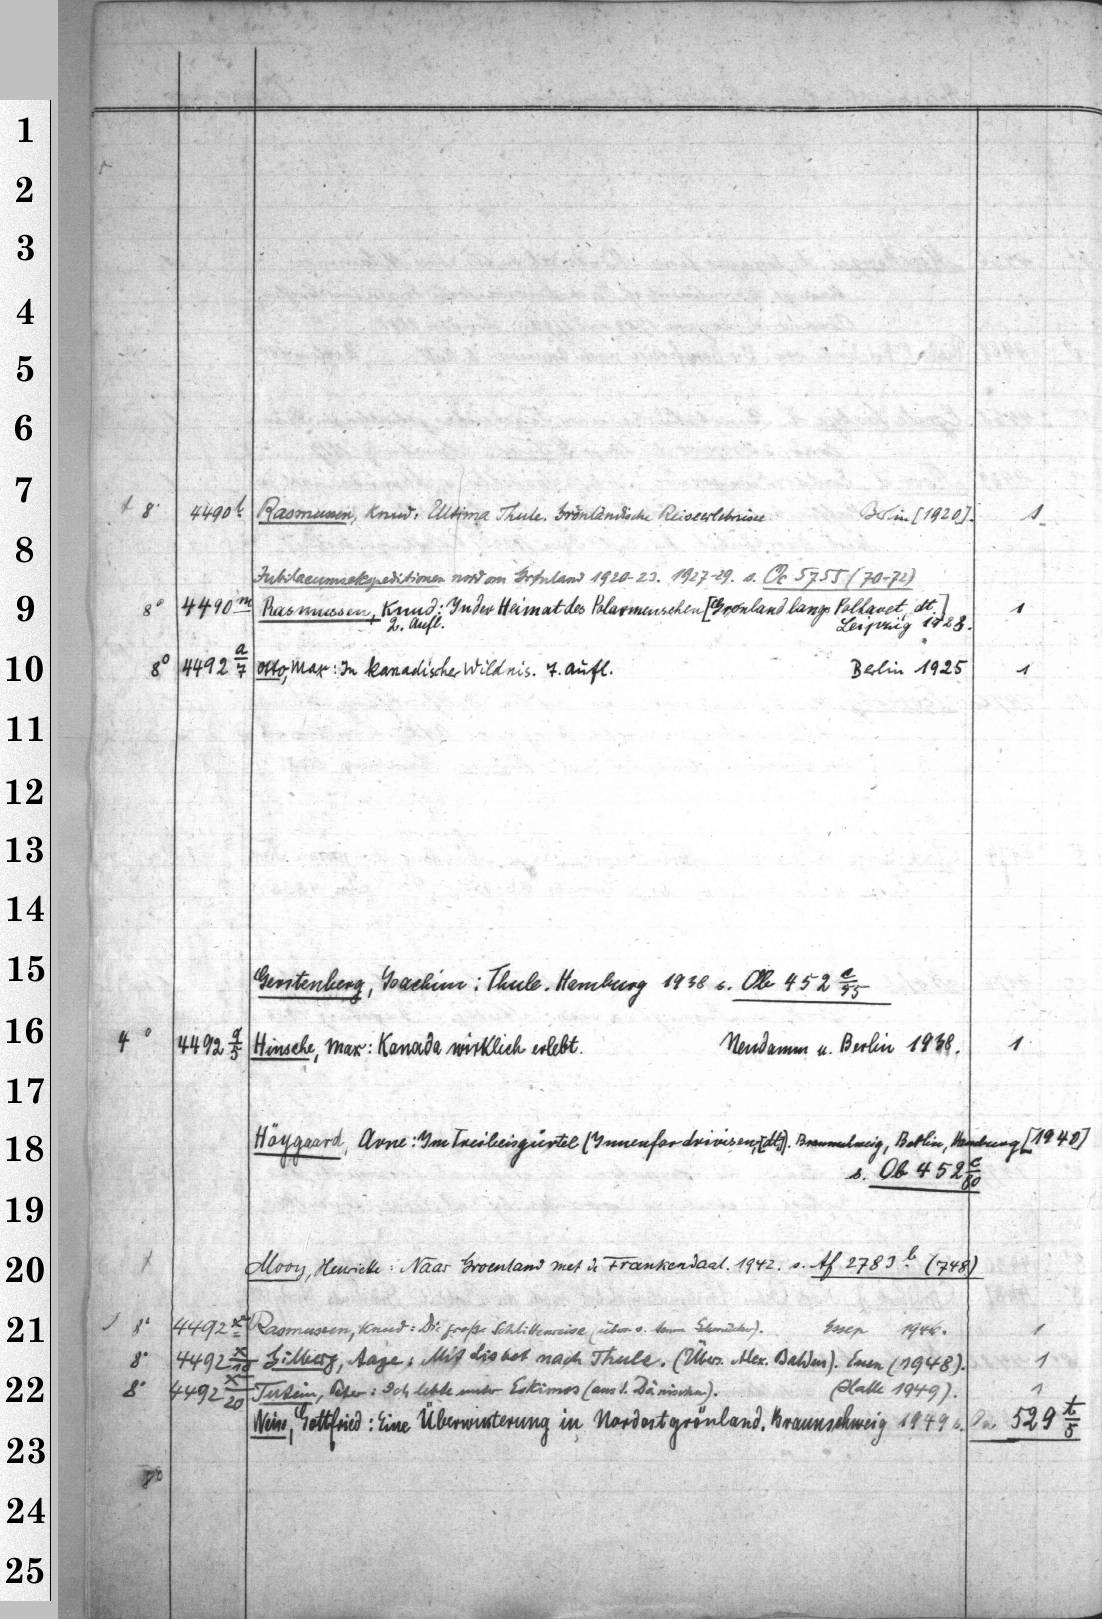 1
2
3
4
5
6
7
8° 4490 l Rasmussen, Knud: Ultima Thule. Grönländische Reiseerlebnisse. Berlin [1920]. 1
8
Jubilaeumsekspeditionen nord om Grønland 1920-23. 1927-29. s. Oc 5755 (70-72)
9 8° 4490 m Rasmussen, Knud: In der Heimat des Polarmenschen [Grønland langs Polhavet, dt.]
2. Aufl. Leipzig 1928. 1
10 8° 4492 a/7 Otto, Max: In kanadischer Wildnis. 7. Aufl. Berlin 1925 1
11
12
13
14
15 Gerstenberg, Joachim: Thule. Hamburg 1938 s. Ob 452 c/55
16 4° 4492 q/5 Hinsche, Max: Kanada wirklich erlebt. Neudamm u. Berlin 1938. 1
17
18 Höygaard, Arne: Im Treibeisgürtel (Innenfor drivisen, [dt.]). Braunschweig, Berlin, Hamburg [1940]
s. Ob 452 c/60
19
20 Mooy, Henriette: Naar Groenland met de Frankendaal. 1942. s. Af 2783 b (748)
21 8° 4492 x Rasmussen, Knud: Die große Schlittenreise Essen 1946. 1
8° 4492 x/10 Gilberg, Aage: Mit Lisbet nach Thule. (Übers. Alex. Baldus). Essen (1948). 1
22 8° 4492 x/20 Tutein, Peter: Ich lebte unter Eskimos (aus d. Dänischen). (Halle 1949). 1
Weiss, Gottfried: Eine Überwinterung in Nordostgrönland. Braunschweig 1949 s. 529 t/5
23
8°
24
25